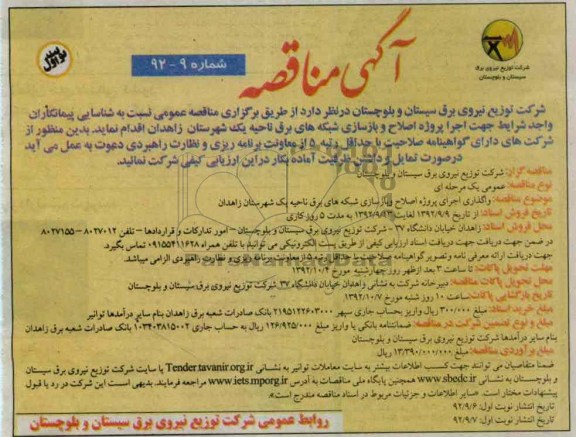 نوبت اول
شماره ۹ - ۹۲
آگهی مناقصه
شرکت توزیع نیروی برق
سیستان و بلوچستان
شرکت توزیع نیروی برق سیستان و بلوچستان درنظر دارد از طریق برگزاری مناقصه عمومی نسبت به شناسایی پیمانکاران
واجد شرایط جهت اجرا پروژه اصلاح و بازسازی شبکه های برق ناحیه یک شهرستان زاهدان اقدام نماید. بدین منظور از
شرکت های دارای گواهینامه صلاحیت با حداقل رتبه ۵ از معاونت برنامه ریزی و نظارت راهبردی دعوت به عمل می آید
درصورت تمایل و داشتن ظرفیت آماده بکار در این ارزیابی کیفی شرکت نمائید.
مناقصه گزار: شرکت توزیع نیروی برق سیستان و بلوچستان
نوع مناقصه: عمومی یک مرحله ای
موضوع مناقصه: واگذاری اجرای پروژه اصلاح وبازسازی شبکه های برق ناحیه یک شهرستان زاهدان
تاریخ فروش اسناد: از تاریخ ۱۳۹۲/۹/۹ لغایت ۱۳۹۲/۹/۲۳ به مدت ۵ روز کاری
محل فروش اسناد: زاهدان خیابان دانشگاه ۳۷ - شرکت توزیع نیروی برق سیستان و بلوچستان - امور تدارکات و قراردادها - تلفن ۸۰۲۷۰۱۲ - ۸۰۲۷۱۵۵
در ضمن جهت دریافت جهت دریافت اسناد ارزیابی کیفی از طریق پست الکترونیکی می توانید با تلفن همراه ۰۹۱۵۵۴۱۱۶۲۸ تماس بگیرد.
جهت دریافت ارائه معرفی نامه وتصویر گواهینامه صلاحیت با حداقل رتبه ۵ از معاونت برنامه ریزی و نظارت راهبردی الزامی میباشد.
مهلت تحویل پاکات: تا ساعت ۳ بعد ازظهر روز چهارشنبه مورخ ۱۳۹۲/۱۰/۴
محل تحویل پاکات مناقصه: دبیرخانه شرکت به نشانی زاهدان خیابان دانشگاه ۳۷ شرکت توزیع نیروی برق سیستان و بلوچستان
تاریخ بازگشایی پاکات: ساعت ۱۰ روز شنبه مورخ ۱۳۹۲/۱۰/۷
مبلغ خرید اسناد: مبلغ ۳۰۰/۰۰۰ ریال واریز بحساب جاری سپهر ۲۱۹۵۱۲۲۶۰۳۰۰۰ بانک صادرات شعبه برق زاهدان بنام سایر درآمدها توانیر
مبلغ و نوع تضمین شرکت در مناقصه: ضمانتنامه بانکی یا واریز مبلغ ۱۲۶/۹۲۵/۰۰۰ ریال به حساب جاری ۱۰۳۴۰۳۸۱۵۰۰۲ بانک صادرات شعبه برق زاهدان
بنام سایر درآمدها شرکت توزیع نیروی برق سیستان و بلوچستان
مبلغ برآوردی مناقصه: مبلغ ۱۳/۳۹۰/۰۰۰/۰۰۰ ریال
ضمنا متقاضیان می توانند جهت کسب اطلاعات بیشتر به سایت معاملات توانیر به نشانی Tender.tavanir.org.ir یا سایت شرکت توزیع نیروی برق سیستان
و بلوچستان به نشانی www.sbedc.ir همچنین پایگاه ملی مناقصات به آدرس www.iets.mporg.ir مراجعه فرمایند. بدیهی است این شرکت در رد یا قبول
پیشنهادات مختار است. «سایر اطلاعات و جزئیات مربوط در اسناد مناقصه مندرج است».
تاریخ انتشار نوبت اول: ۹۲/۹/۶
تاریخ انتشار نوبت اول: ۹۲/۹/۷
روابط عمومی شرکت توزیع نیروی برق سیستان و بلوچستان